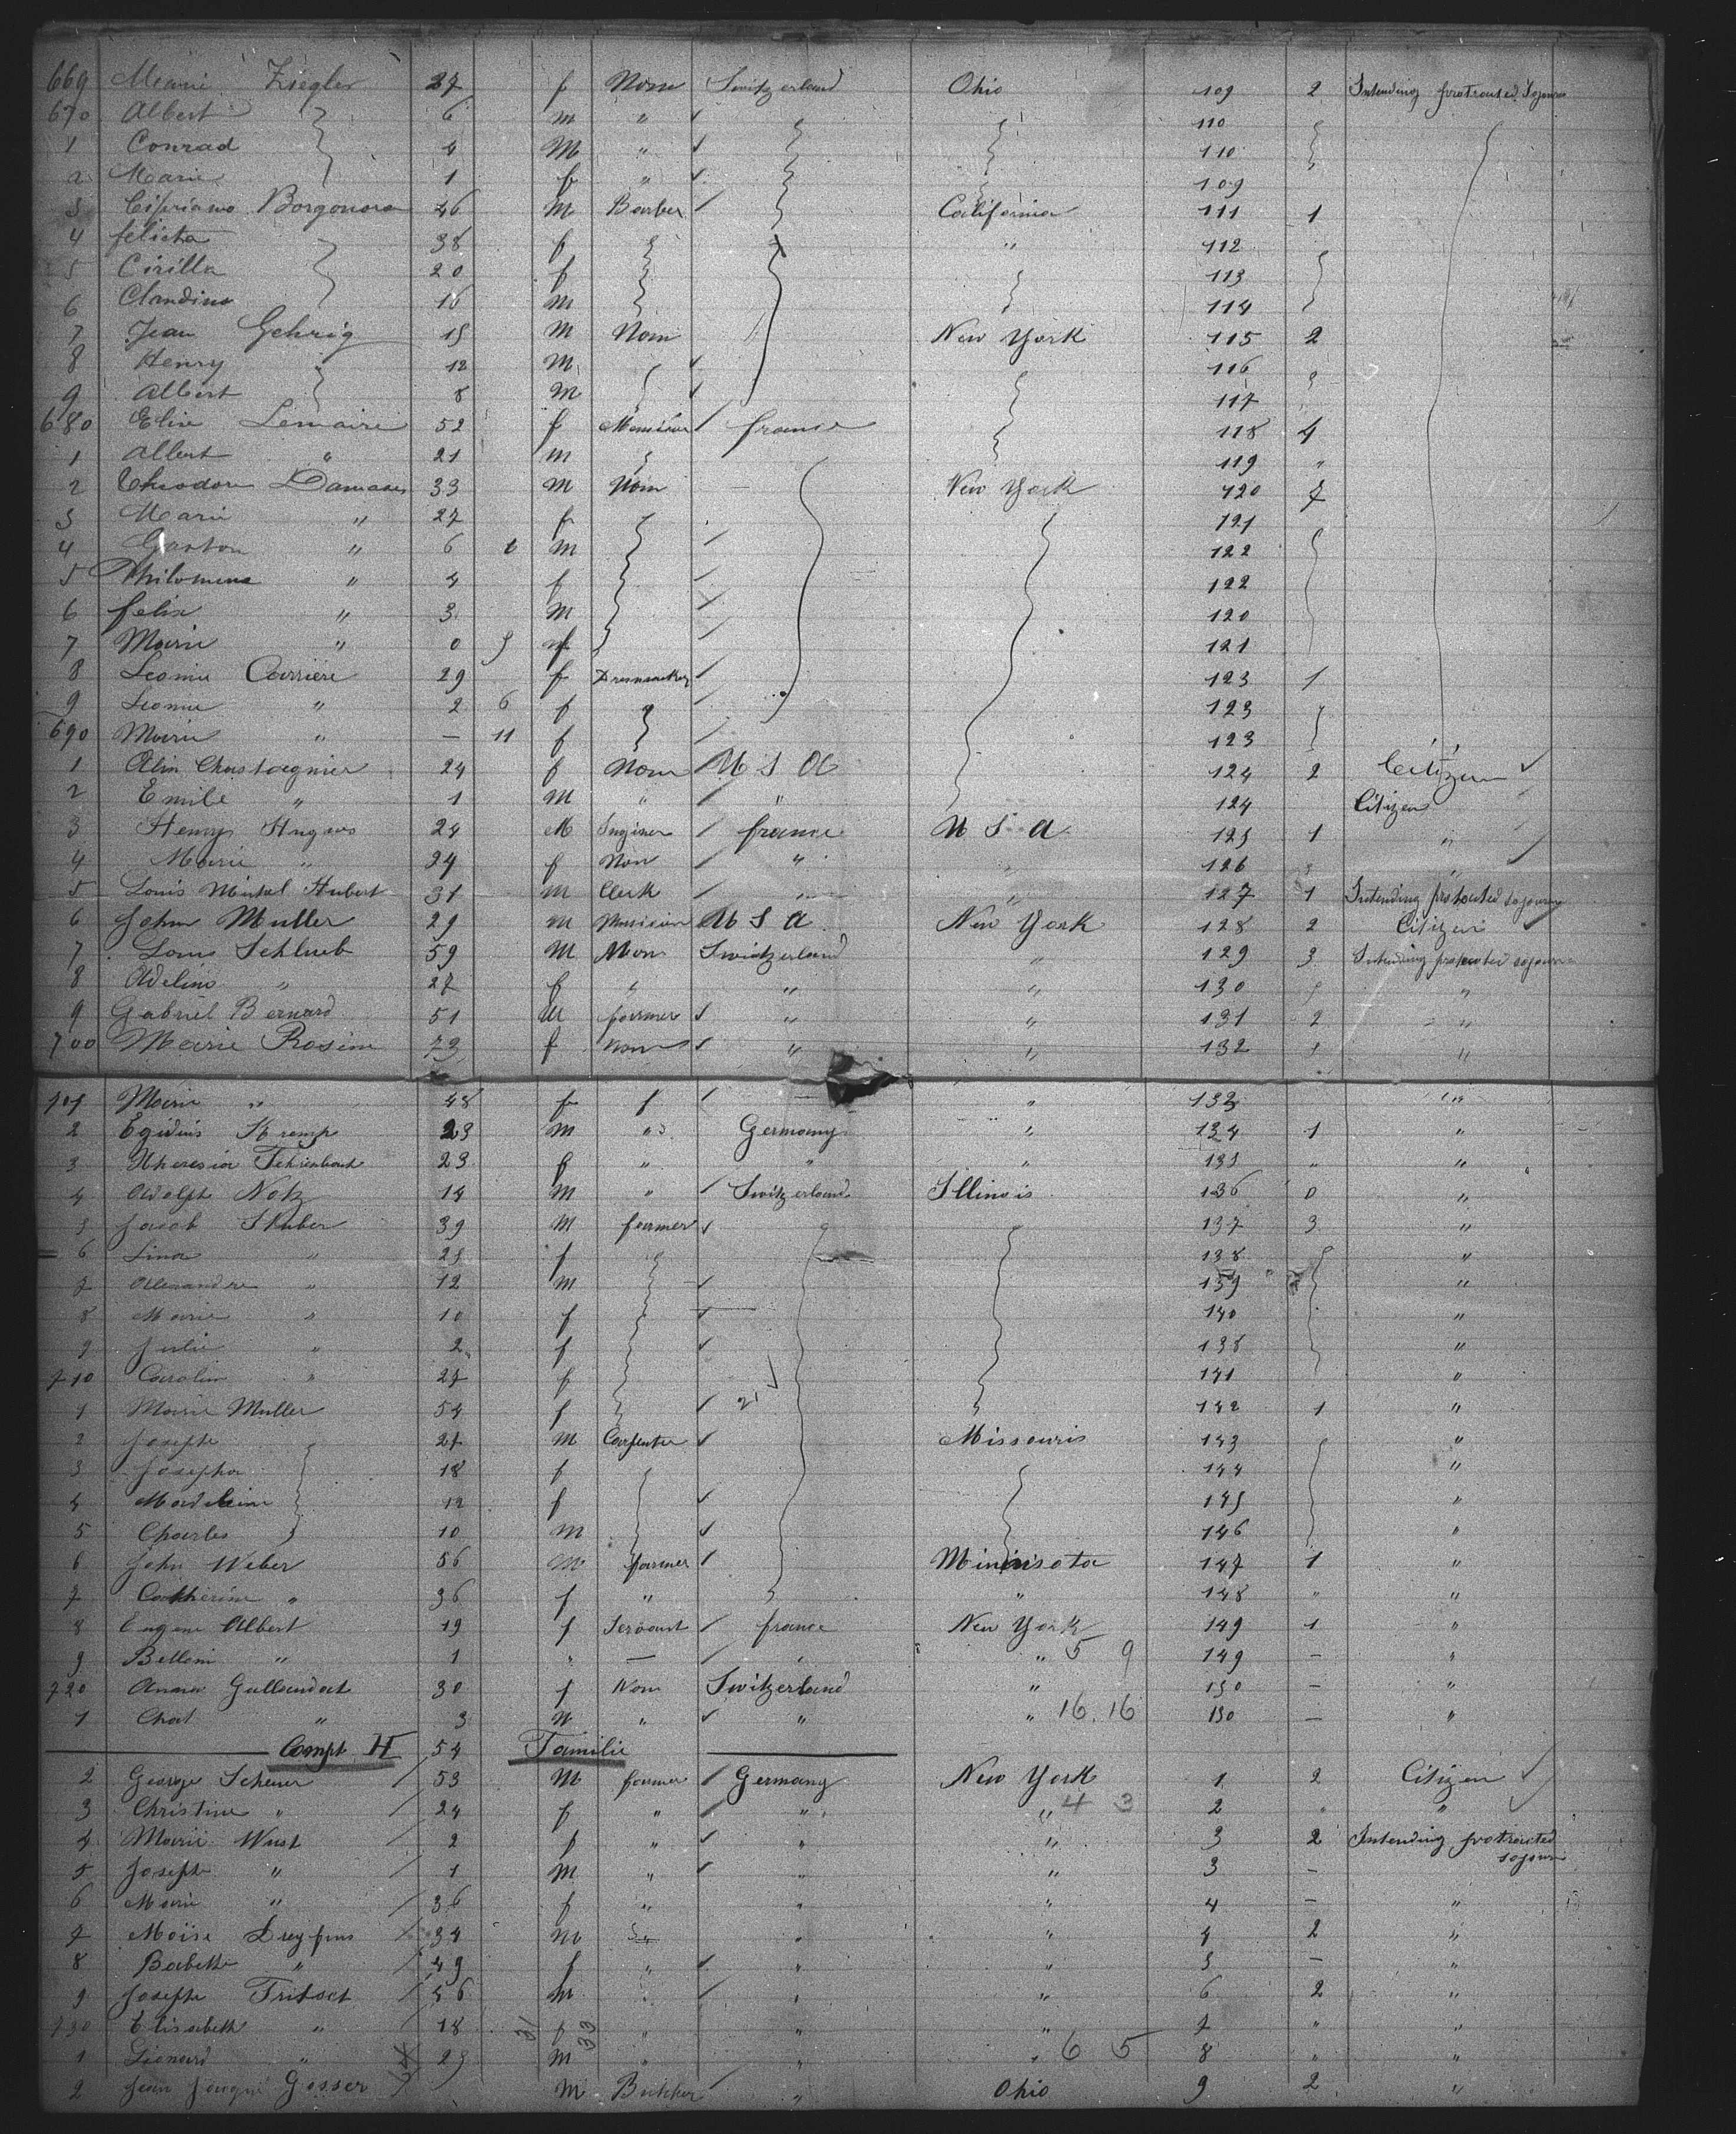 669 Marie Ziegler 27 f Non Switzerland Ohio 109 2 Intending protracted Sojourn
670 Albert 6 m " 110
1 Conrad 4 M " 110
2 Marie 1 f " 109
3 Cipriano Borgonora 46 M Barber California 111 1
4 felicita 38 f " 112
5 Cirilla 20 f 113
6 Claudino 16 m 114
7 Jean Gehrig 15 M Non New York 115 2
8 Henry 12 M 116
9 Albert 8 M 117
680 Elise Lemaire 52 f Musician france 118 4
1 Albert " 21 m 119 "
2 Theodore Damases 33 M Non New York 120 7
3 Marie " 27 f 121
4 Gaston " 6 6 m 122
5 Philomene " 4 f 122
6 felix " 3 M 120
7 Marie " 0 9 f 121
8 Leonie Carriere 29 f Dressmaker 123 1
9 Leonie " 2 6 f 123
690 Marie " — 11 f 123
1 Alin Chastagnier 24 f Non U S A 124 2 Citizen
2 Emile " 1 M " " 124 Citizen
3 Henry Hugues 24 M Enginer france U S A 125 1 "
4 Marie " 24 f Non " " 126 "
5 Louis Mistal Hubert 31 M Clerk " " 127 1 Intending protracted sojourn
6 John Muller 29 m Musician U S A New York 128 2 Citizen
7 Louis Schlueb 59 M Non Switzerland " 129 3 Intending protracted sojourn
8 Adeline " 27 f " " " 130 "
9 Gabriel Bernard 51 M farmer " " 131 2 "
700 Marie Rosine 73 f non " " 132 1 "
701 Marie " 48 f " 133 "
2 Egidius Kremp 23 m " Germany " 134 1 "
3 Theresia Schienbart 23 f " " " 135 " "
4 Adolph Notz 14 m " Switzerland Illinois 136 0 "
5 Jacob Stuber 39 M farmer 137 3 "
6 Lina " 25 f 138 "
7 Alexandre " 12 m 139 "
8 Marie " 10 f 140 "
9 Julie " 2 f 138 "
710 Carolin " 27 f 141 "
1 Marie Muller 54 f 142 1 "
2 Joseph 21 M Carpenter Missouris 143 "
3 Josepha 18 f 144 "
4 Madeleine 12 f 145 "
5 Charles 10 M 146 "
6 John Weber 56 M farmer Mininsota 147 1 "
7 Catherine " 36 f " " 148 " "
8 Eugene Albert 19 f Servant france New York 149 1 "
9 Belloni " 1 " — " " 5 9 149 — "
720 Anna Gallandat 30 f Non Switzerland " 150 — "
1 Chat " 3 M " " " 16.16 150 — "
Compt H 54 Familie
2 George Scheuer 53 M farmer Germany New York 1 2 Citizen
3 Christine " 24 f " " " 4 3 2 " "
4 Marie Wust 2 f " " " 3 2 Intending protracted sojourn
5 Joseph " 1 M " " " 3 —
6 Marie " 36 f " " " 4 — "
7 Moïse Dreyfuss 34 m " " 4 2 "
8 Babette " 49 f " " " 5 — "
9 Joseph Tritsct 56 M " " " 6 2 "
730 Elisabeth " 18 31 f 33 " " " 7 " "
1 Lienard " 25 M " " " 6 5 8 " "
2 Jean Jacque Gasser M Butcher " Ohio 9 2 "